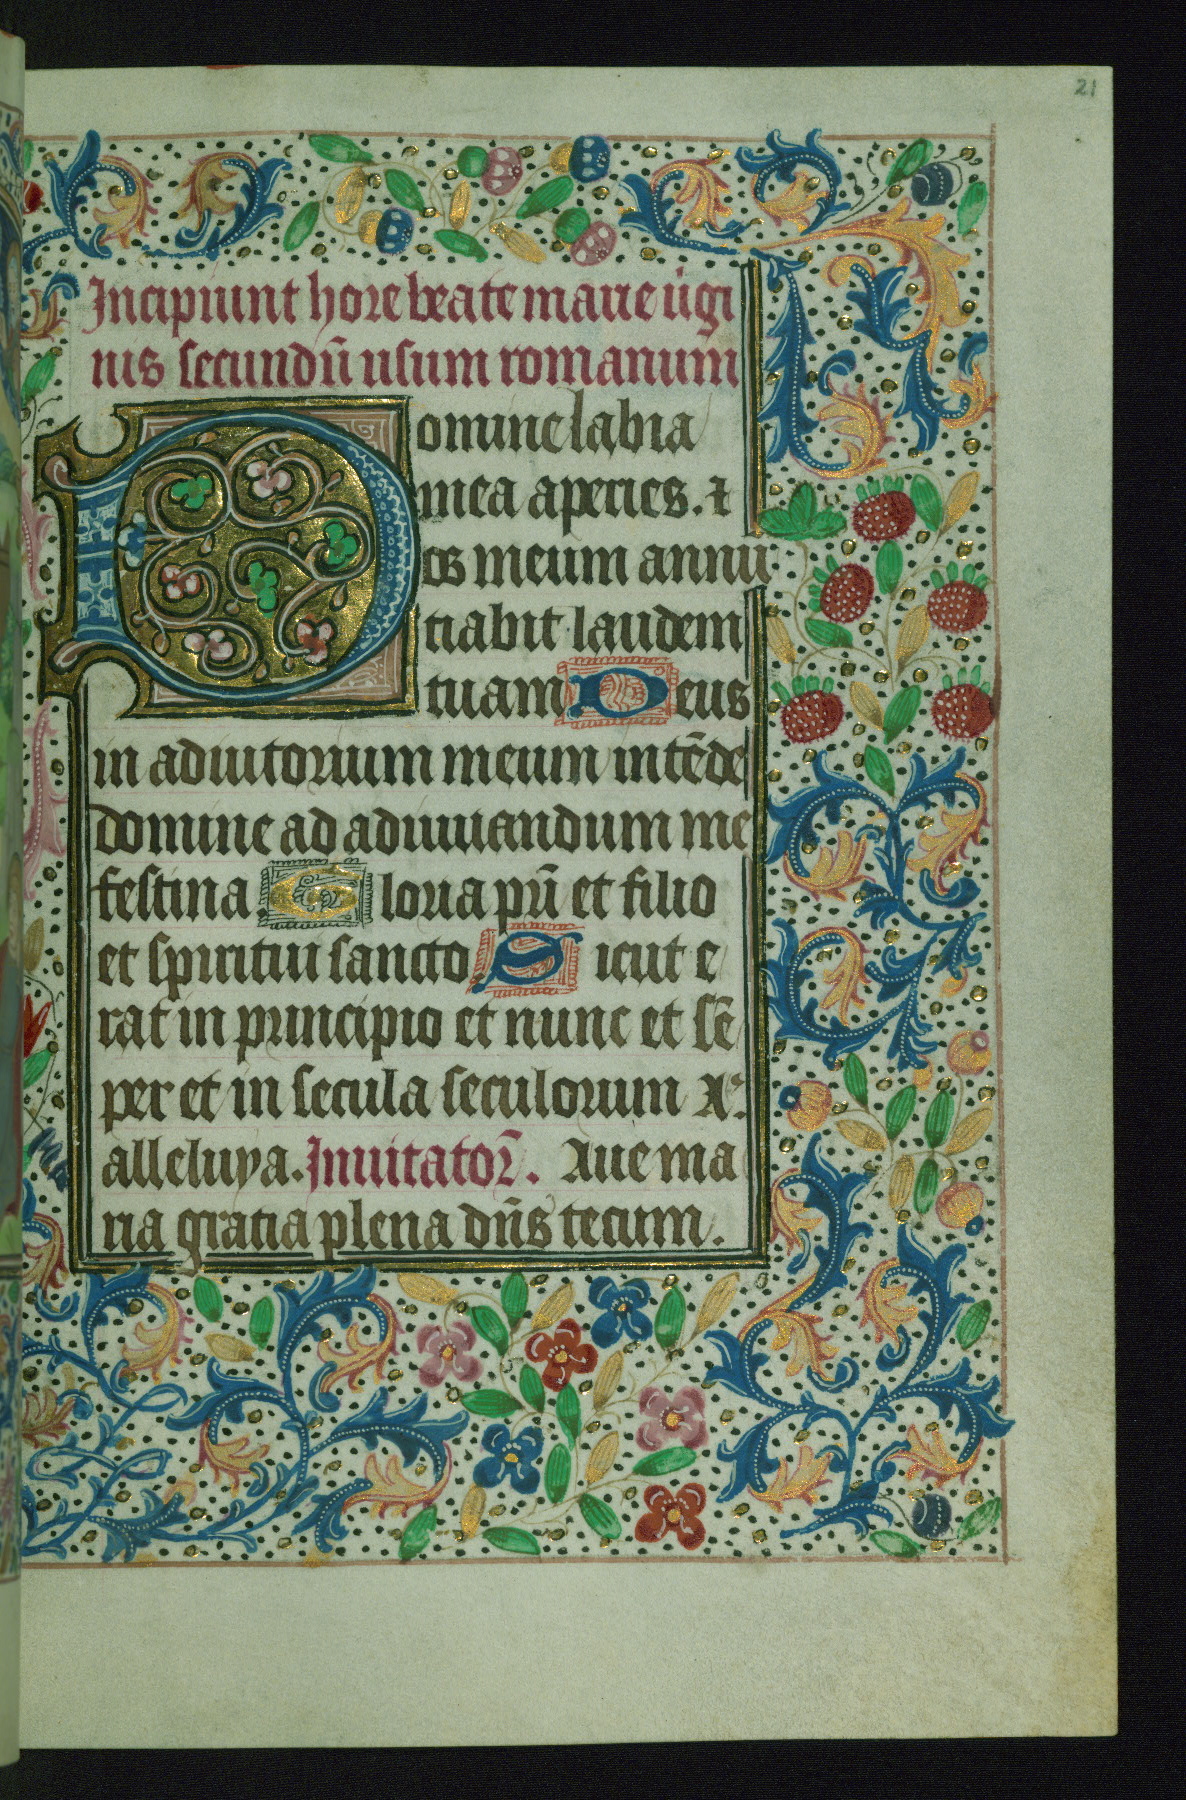 21
Incipiunt hore beate marie v̄gi
nis secundū usum romanum
Domine labia
mea aperies. ⁊
os meum annu
tiabit laudem
tuam Deus
in adiutorium meum intēde
domine ad adiuuandum me
festina Gloria pr̄i et filio
et spiritui sancto Sicut e
rat in principio et nunc et sē
per et in secula seculorum A.
alleluya. Inuitator̄. Aue ma
ria gratia plena dn̄s tecum.